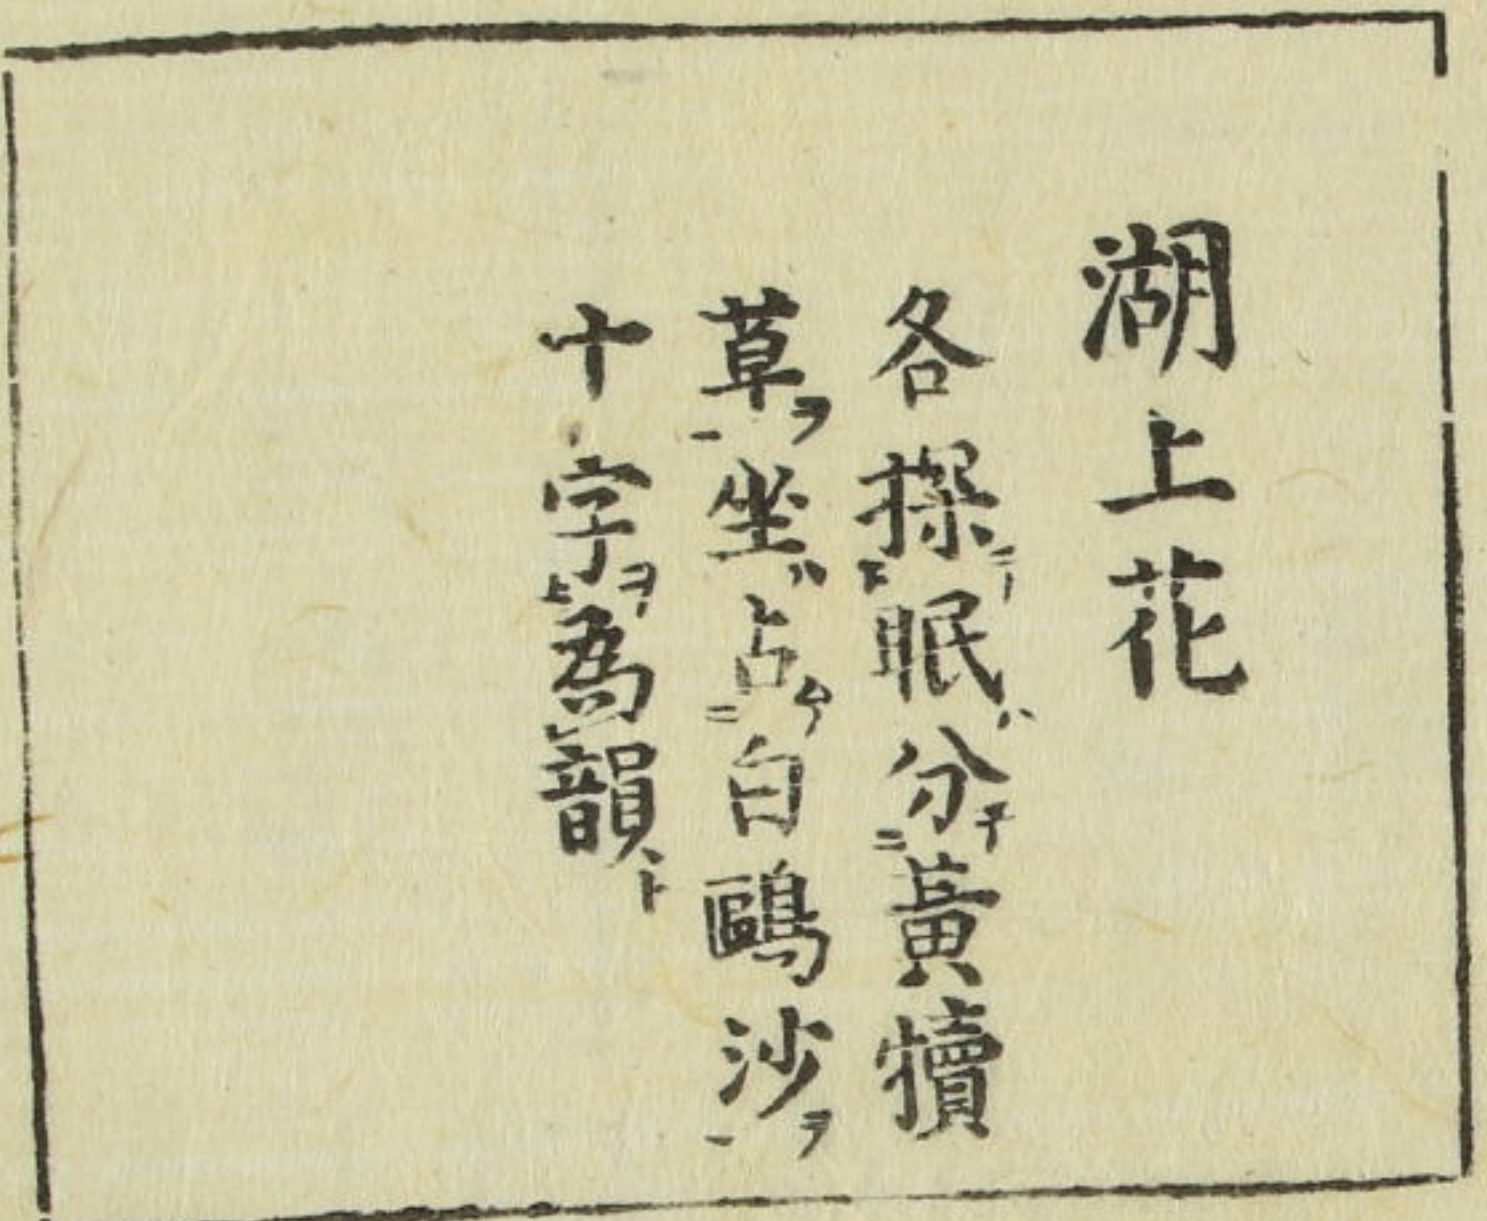 湖上花
各探眠分黃犢
草坐占白鷗沙
十字為韻